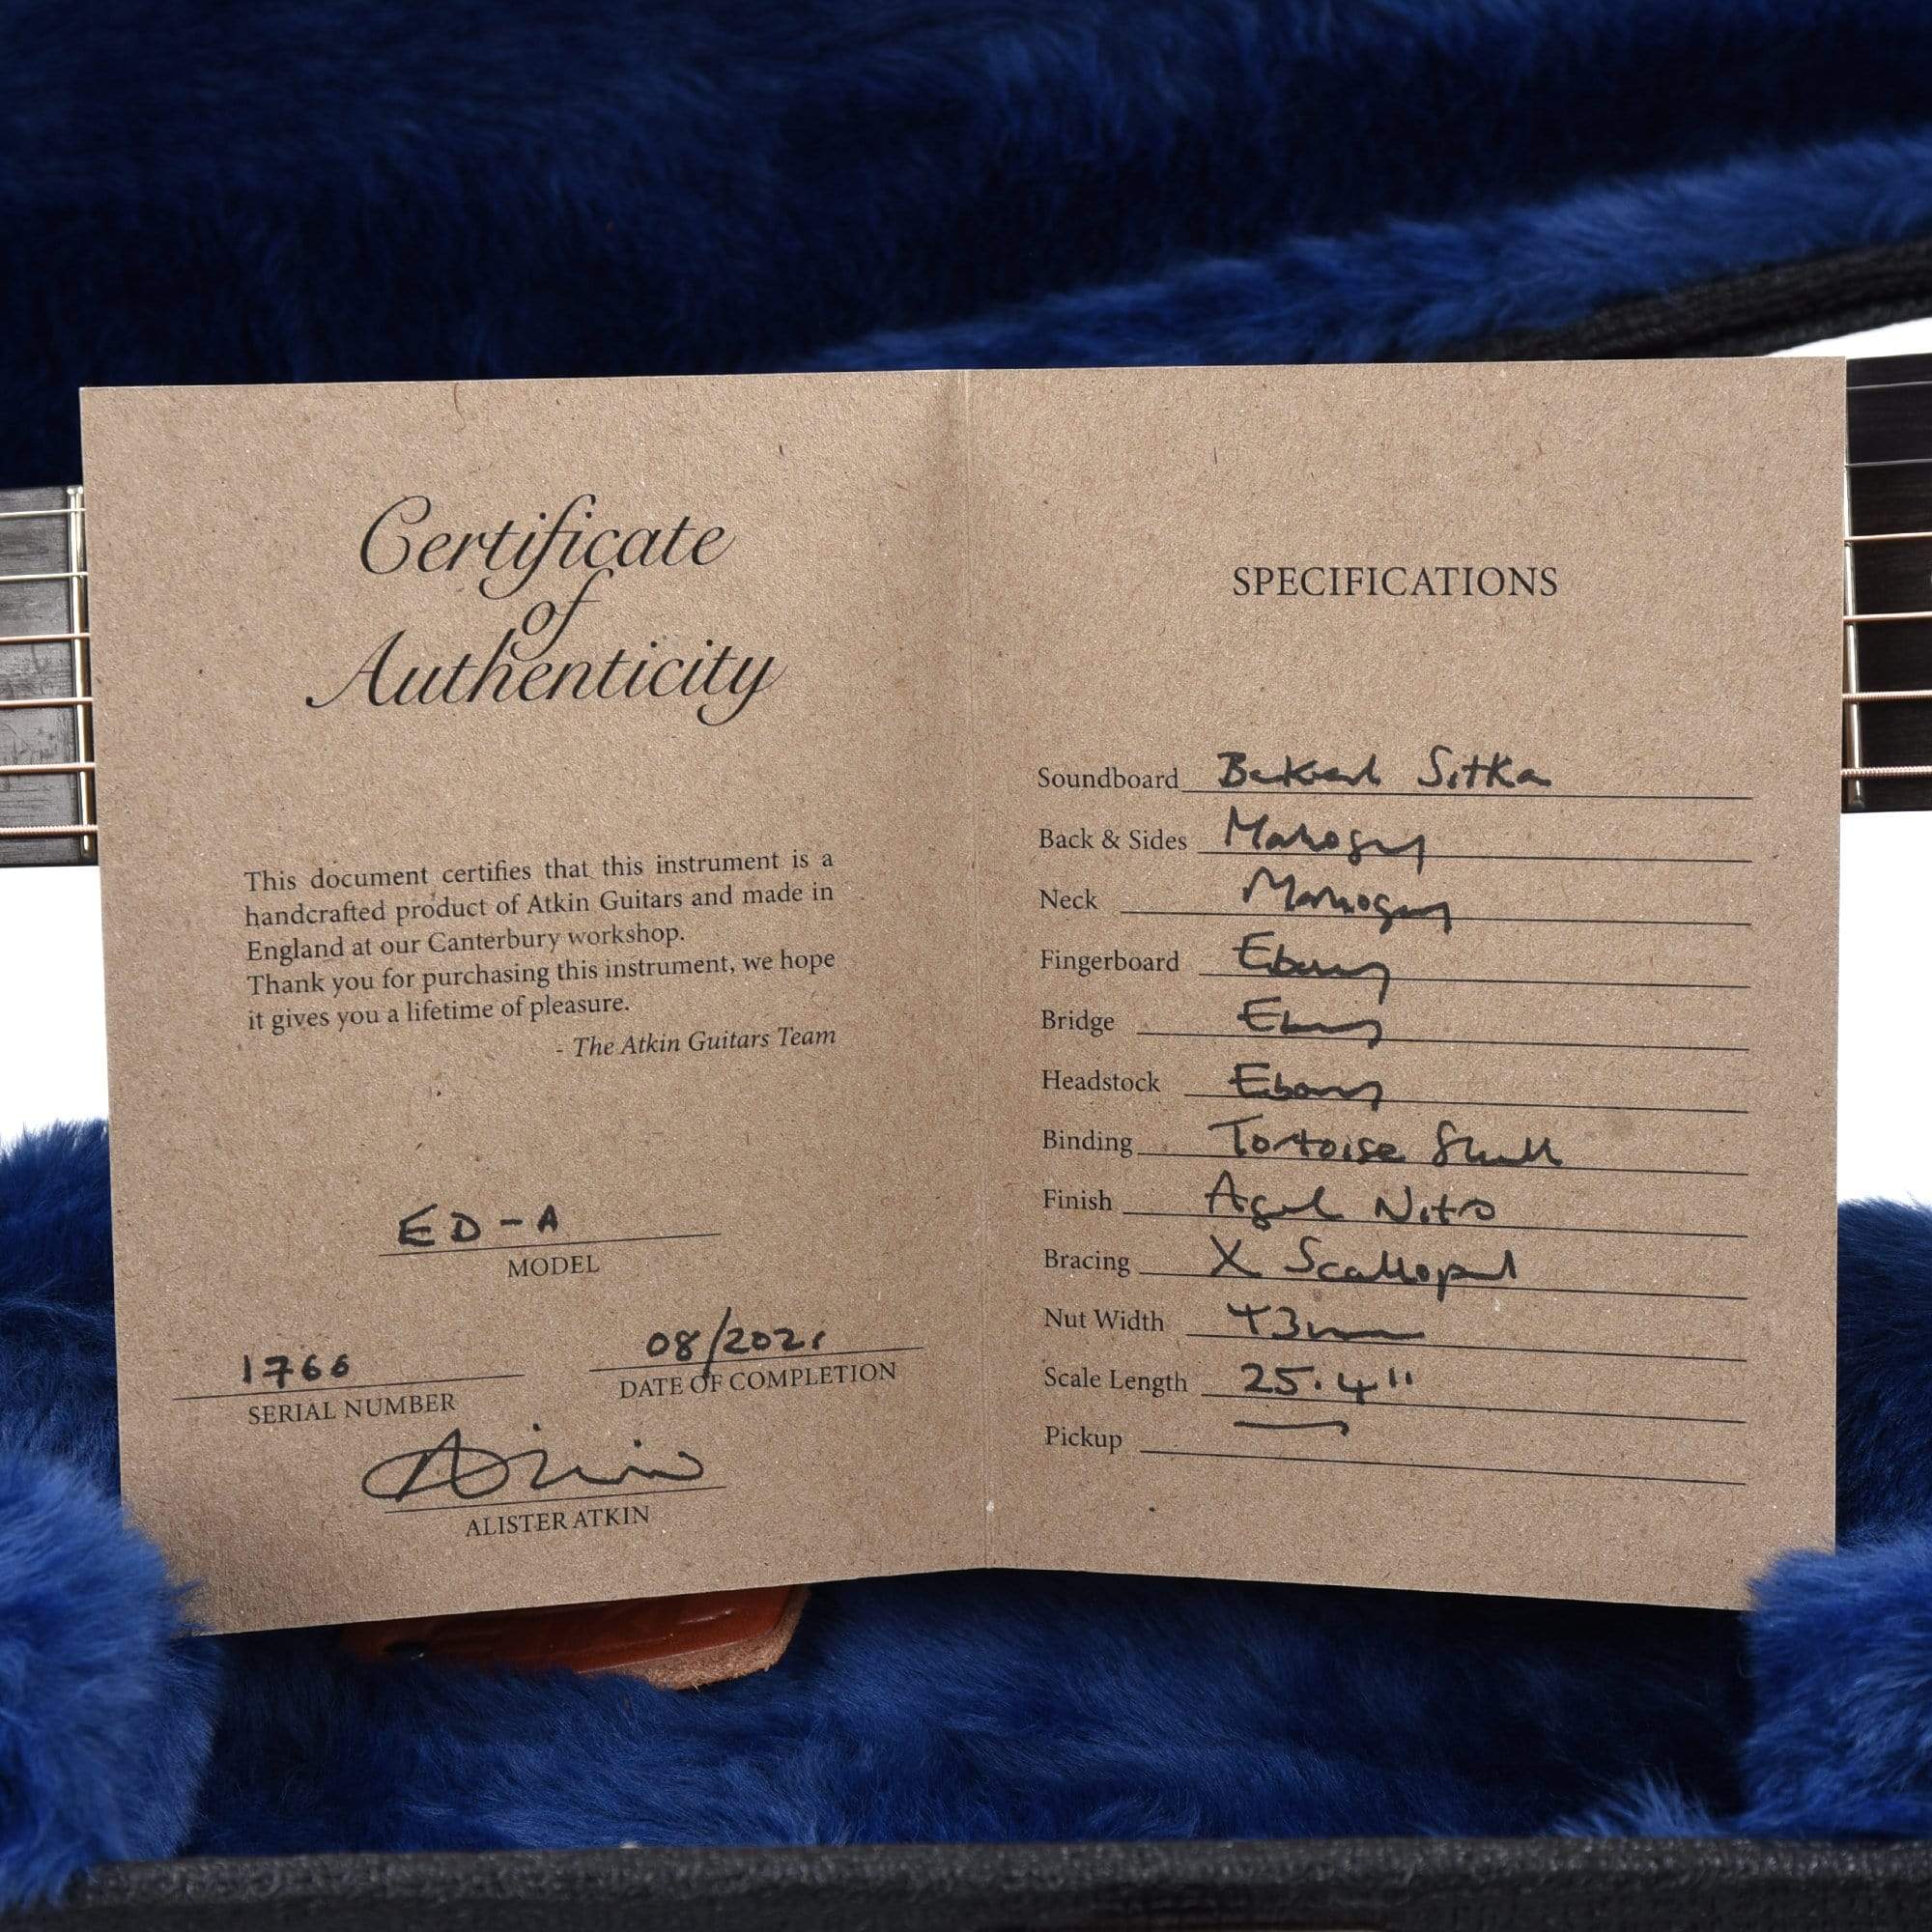 Certificate
of
Authenticity
This document certifies that this instrument is a
handcrafted product of Atkin Guitars and made in
England at our Canterbury workshop.
Thank you for purchasing this instrument, we hope
it gives you a lifetime of pleasure.
- The Atkin Guitars Team
ED-A
MODEL
1766
SERIAL NUMBER
08/2021
DATE OF COMPLETION
ALISTER ATKIN
SPECIFICATIONS
Soundboard Baked Sitka
Back & Sides Mahogany
Neck Mahogany
Fingerboard Ebony
Bridge Ebony
Headstock Ebony
Binding Tortoise Shell
Finish Aged Nitro
Bracing X Scalloped
Nut Width 43mm
Scale Length 25.4"
Pickup —